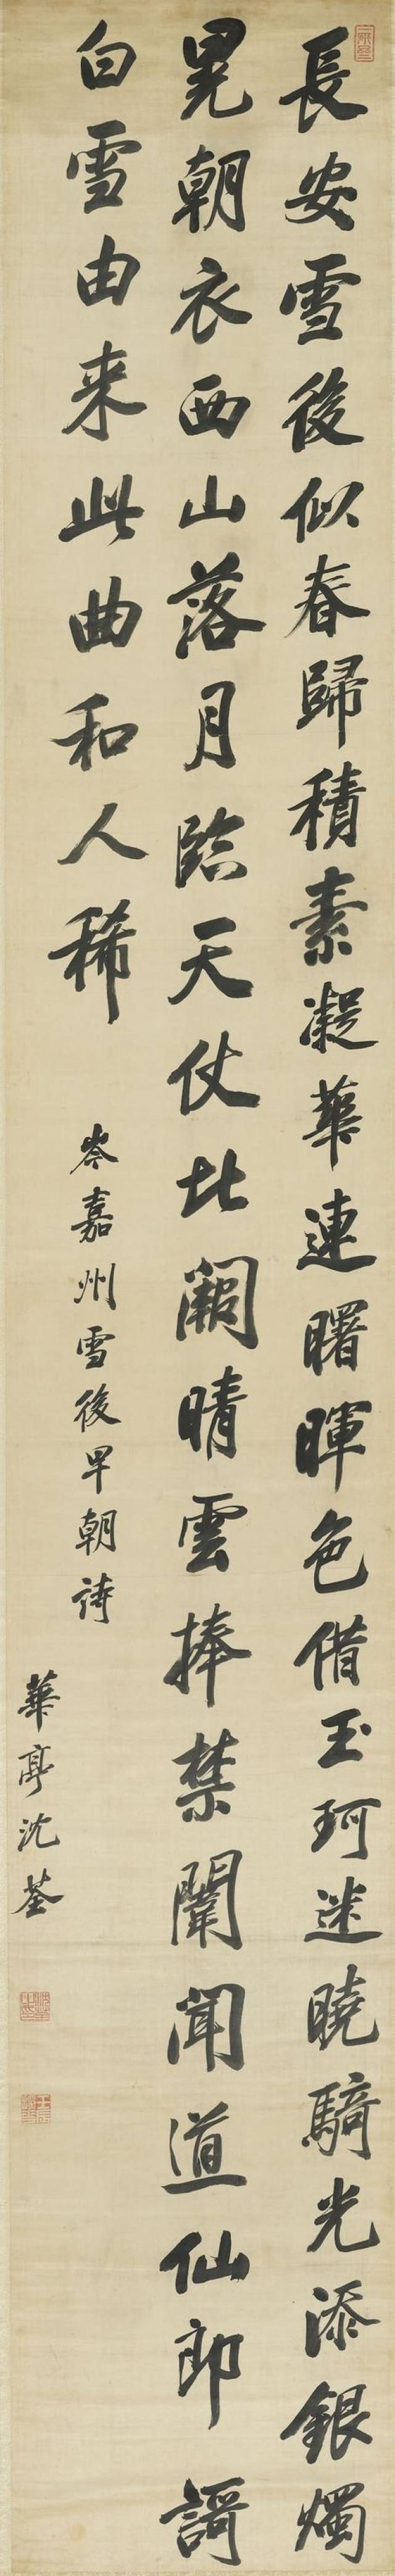 長安雪後似春歸積素凝華連曙暉色借玉珂迷曉騎光添銀燭
晃朝衣西山落月臨天仗北闕晴雲捧禁闈聞道仙郎謌
白雪由来此曲和人稀
岑嘉州雪後早朝詩
華亭沈荃